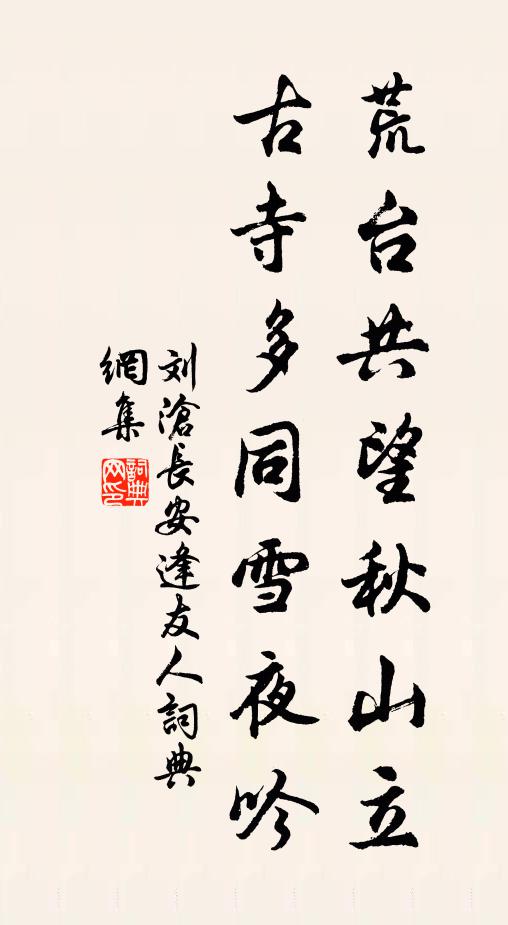 荒台共望秋山立
古寺多同雪夜吟
刘滄長安逢友人詞典
網集
詞典
网印